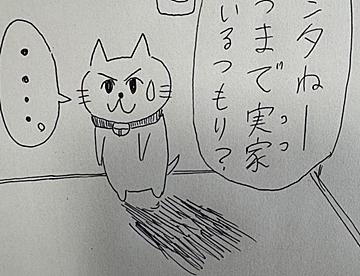 ンタねーっっ
つまで実家
いるつもり？
・・・・。